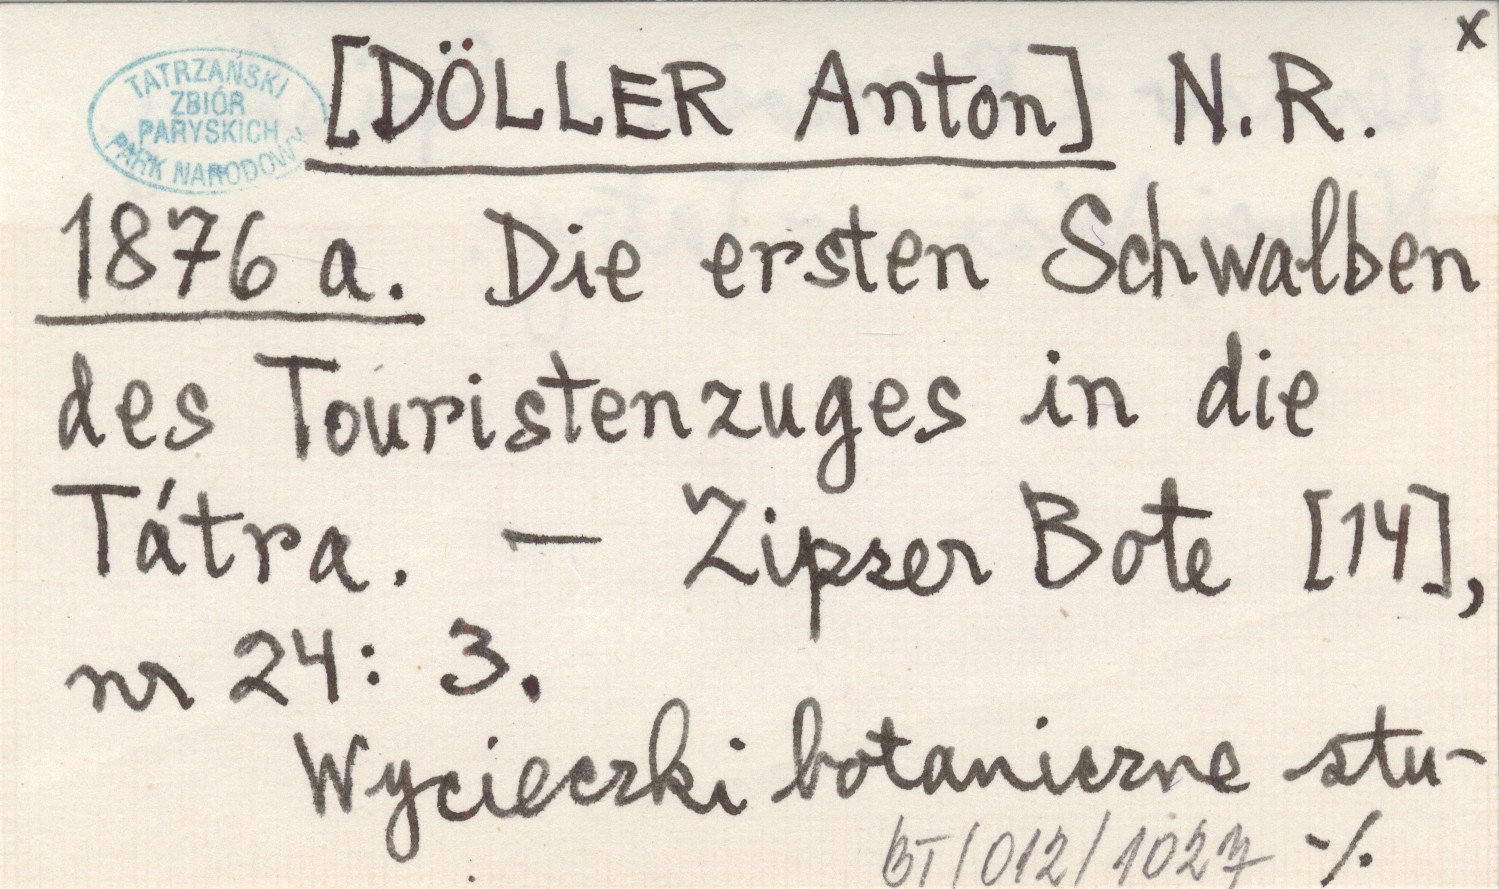 x
[DÖLLER Anton] N.R.
TATRZAŃSKI
ZBIÓR
PARYSKICH
PARK NARODOWY
1876 a. Die ersten Schwalben
des Touristenzuges in die
Tátra. — Zipser Bote [14],
nr 24: 3.
Wycieczki botaniczne stu-
BT/012/1027 -/.